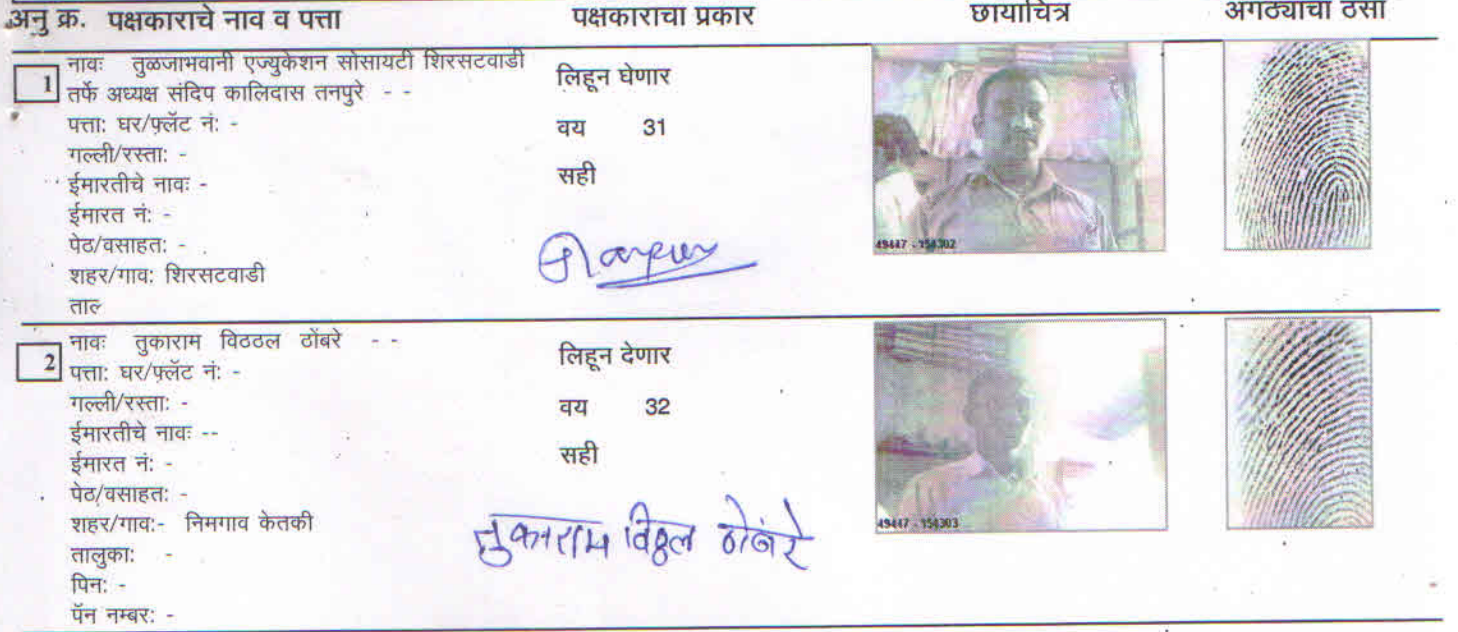 अनु क्र. पक्षकाराचे नाव व पत्ता पक्षकाराचा प्रकार छायाचित्र अंगठ्याचा ठसा
1 नावः तुळजाभवानी एज्युकेशन सोसायटी शिरसटवाडी
तर्फे अध्यक्ष संदिप कालिदास तनपुरे - -
पत्ताः घर/फ्लॅट नंः -
गल्ली/रस्ताः -
ईमारतीचे नावः -
ईमारत नंः -
पेठ/वसाहतः -
शहर/गावः शिरसटवाडी
ताल
लिहून घेणार
वय 31
सही
49447 - 154302
2 नावः तुकाराम विठठल ठोंबरे - -
पत्ताः घर/फ्लॅट नंः -
गल्ली/रस्ताः -
ईमारतीचे नावः --
ईमारत नंः -
पेठ/वसाहतः -
शहर/गावः- निमगाव केतकी
तालुकाः -
पिनः -
पॅन नम्बरः -
लिहून देणार
वय 32
सही
तुकाराम विठ्ठल ठोंबरे
49447 - 154303